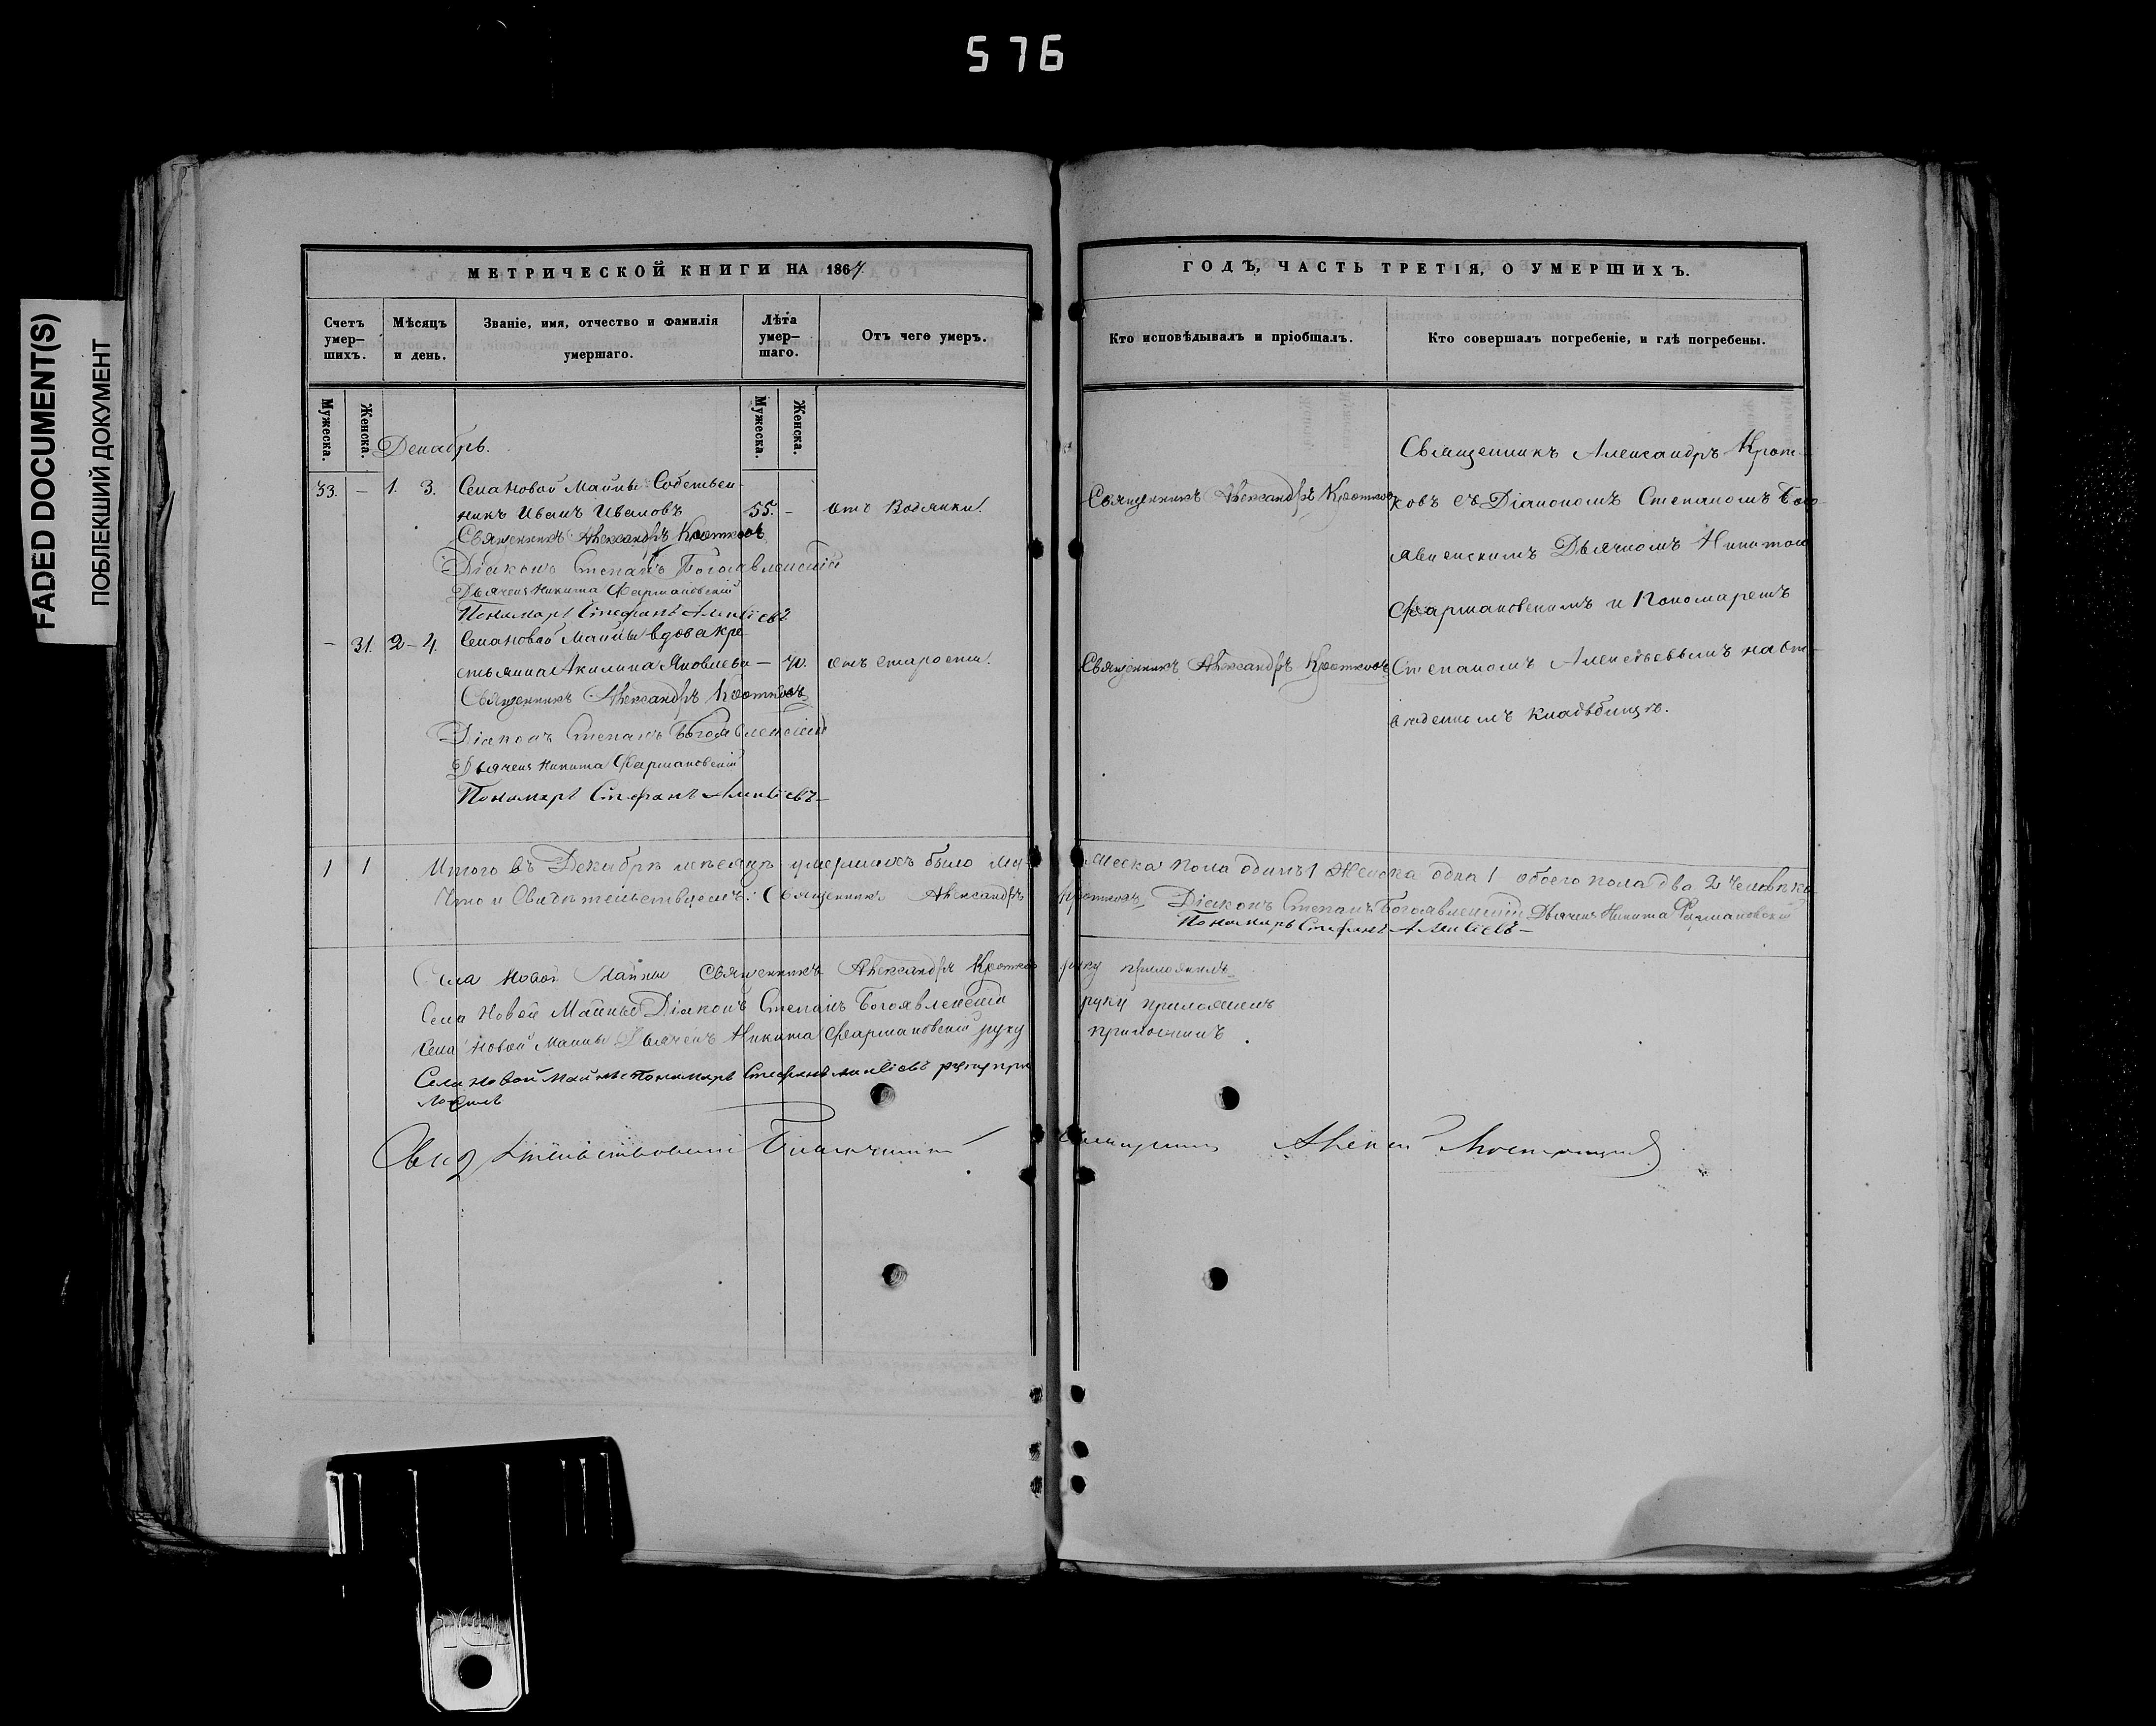 576
FADED DOCUMENT(S)
ПОБЛЕКШИЙ ДОКУМЕНТ
МЕТРИЧЕСКОЙ КНИГИ НА 1867
Счетъ умер-шихъ.
Мѣсяцъ и день.
Званіе, имя, отчество и фамилія умершаго.
Лѣта умер-шаго.
Отъ чего умеръ.
Мужеска.
Женска.
Мужеска.
Женска.
Декабрь.
33. – 1. 3. Села Новой Майны Собствен-
никъ Иванъ Ивановъ 55. – отъ Водянки.
Священникъ Александръ Кротковъ
Діаконъ Степанъ Богоявленскій
Дьячекъ Никита Фармаковскій
Пономарь Стефанъ
– 31. 2 – 4. Села Новой Майны вдова кре
стьянка Акилина Яковлева – 70. отъ старости.
Священникъ Александръ Кротковъ
Діаконъ Степанъ Богоявленскій
Дьячекъ Никита Фармаковскій
Пономарь Стефанъ
1 1 Итого въ Декабрѣ мѣсяцѣ умершихъ было му-
Что и Свидѣтельствуемъ: Священникъ Александръ
Села Новой Майны Священникъ Александръ Кротковъ
Села Новой Майны Діаконъ Степанъ Богоявленскій
Села Новой Майны Дьячекъ Никита Фармаковскій руку
Села Новой Майны Пономарь Стефанъ руку при
ложилъ
ГОДЪ, ЧАСТЬ ТРЕТІЯ, О УМЕРШИХЪ.
Кто исповѣдывалъ и пріобщалъ.
Кто совершалъ погребеніе, и гдѣ погребены.
Священникъ Александръ Кротковъ
Священникъ Александръ Кротковъ
Священникъ Александръ Крот-
ковъ съ Діакономъ Степаномъ Бого-
явленскимъ Дьячкомъ Никитою
Фармаковскимъ и Пономаремъ
Степаномъ Алексѣевымъ на от-
веденномъ кладбищѣ.
жеска пола одинъ 1 Женска одна 1 обоего пола два 2 человѣка
Кротковъ, Діаконъ Степанъ Богоявленскій Дьячекъ Никита Фармаковскій
Пономарь Стефанъ
руку приложилъ
руку приложилъ
приложилъ